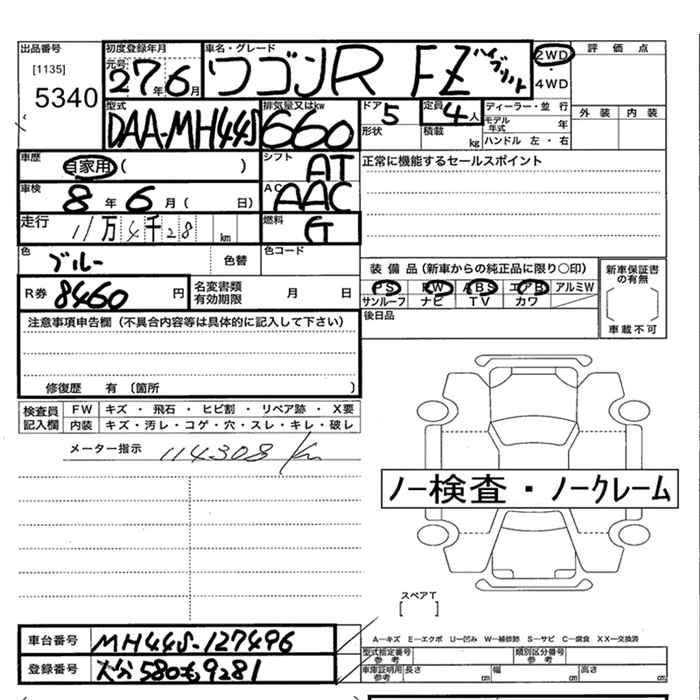 出品番号
[1135]
5340
初度登録年月
元号
27年6月
車名・グレード
ワゴンR FZ ハイブリット
2WD
・
4WD
評価点
外装 内装
型式
DAA-MH44S
排気量又はkw
660
ドア
5
形状
定員
4人
積載 kg
ディーラー・並行
モデル年式 年
ハンドル 左・右
車歴
自家用( )
シフト
AT
正常に機能するセールスポイント
車検
8年6月( 日)
AC
AAC
走行
11万4千28 km
燃料
G
色
ブルー
色替
色コード
R券 8460円
名変書類有効期限 月 日
装備品(新車からの純正品に限り〇印)
PS PW ABS エアB アルミW
サンルーフ ナビ TV カワ
新車保証書の有無
車載不可
後日品
注意事項申告欄(不具合内容等は具体的に記入して下さい)
修復歴 有〔箇所 〕
検査員記入欄
FW キズ・飛石・ヒビ割・リペア跡・X要
内装 キズ・汚レ・コゲ・穴・スレ・キレ・破レ
メーター指示 114308 km
ノー検査・ノークレーム
スペアT
[ ]
車台番号 MH44S-127496
登録番号 大分580も9281
A―キズ E―エクボ U―凹み W―補修跡 S―サビ C―腐食 XX―交換済
型式指定番号参考
類別区分番号参考
車庫証明用参考 長さ cm 幅 cm 高さ cm